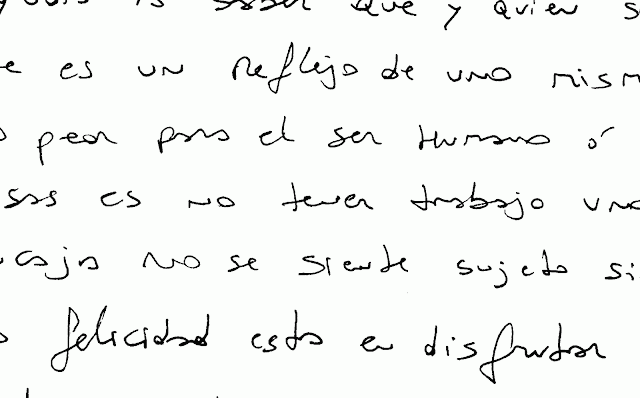 is saber que y quien s
e es un reflejo de uno mism
peor para el ser humano ó
sas es no tener trabajo una
caja no se siente sujeto si
felicidad esta en disfrutar